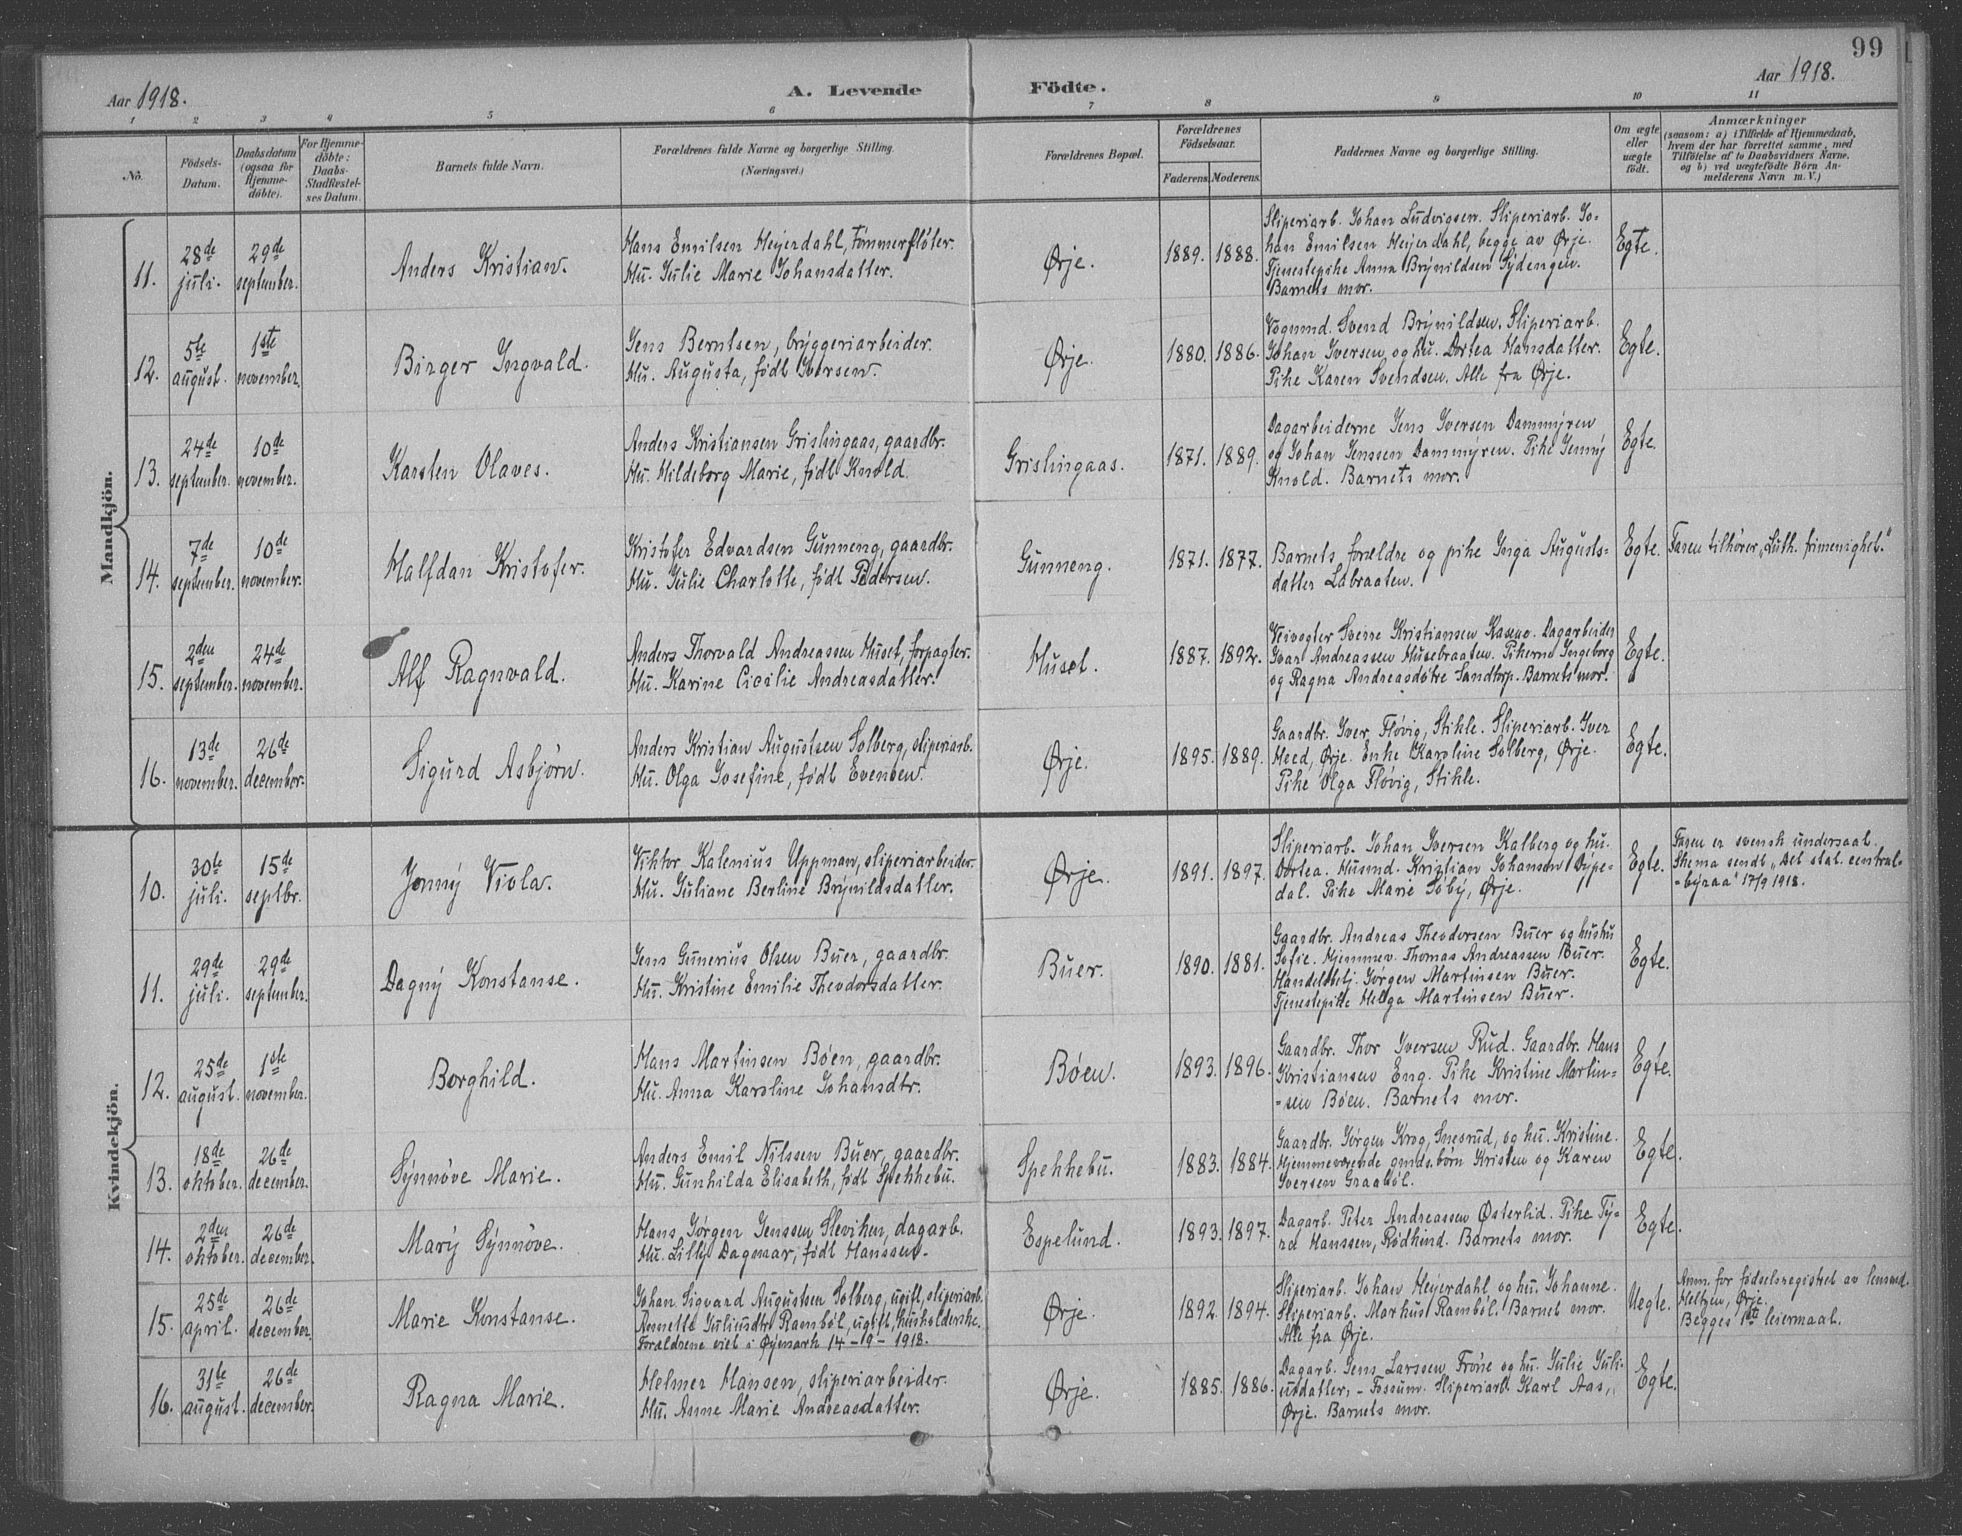 99
Aar 1918.
A. Levende Födte.
Aar 1918.
1 2 3 4 5 6 7 8 9 10 11
No.
Födsels-Datum.
Daabsdatum (ogsaa for Hjemme-döbte).
For Hjemme-döbte: Daabs-Stadfæstel-ses Datum.
Barnets fulde Navn.
Forældrenes fulde Navne og borgerlige Stilling.
(Næringsvei.)
Forældrenes Bopæl.
Forældrenes Födselsaar.
Faderens. Moderens.
Faddernes Navne og borgerlige Stilling.
Om ægte eller uægte födt.
Anmærkninger
(saasom: a) i Tilfælde af Hjemmedaab,
hvem der har forrettet samme, med
Tilföielse af to Daabsvidners Navne.
og b) ved uægtefödte Börn An-
melderens Navn m. V.)
Mandkjön.
11. 28de juli. 29de september. Anders Kristian.
Hans Emilsen Heyerdahl, tømmerfløter.
Hu. Julie Marie Johansdatter.
Ørje. 1889. 1888.
Sliperiarb. Johan Ludvigsen. Sliperiarb. Jo-
han Emilsen Heyerdahl, begge av Ørje.
Tjenestepike Anna Brynildsen Sydengen.
Barnets mor.
Egte.
12. 5te august. 1ste november. Birger Ingvald.
Jens Berntsen, bryggeriarbeider.
Hu. Augusta, født Iversen.
Ørje. 1880. 1886.
Vognmd. Svend Brynildsen. Sliperiarb.
Johan Iversen og hu. Dortea Hansdatter.
Pike Karen Svendsen. Alle fra Ørje.
Egte.
13. 24de september. 10de november. Karsten Olaves.
Anders Kristiansen Grislingaas, gaardbr.
Hu. Hildeborg Marie, født Knold.
Grislingaas. 1871. 1889.
Dagarbeiderne Jens Iversen Dammyren
og Johan Jenssen Dammyren. Pike Jenny
Knold. Barnets mor.
Egte.
14. 7de september. 10de november. Halfdan Kristofer.
Kristofer Edvardsen Gunneng, gaardbr.
Hu. Julie Charlotte, født Pedersen.
Gunneng. 1871. 1877.
Barnets forældre og pike Inga Augusts-
datter Labraaten.
Egte.
Faren tilhører "Luth. frimenighet."
15. 2den september. 24de november. Alf Ragnvald.
Anders Thorvald Andreassen Huset, forpagter.
Hu. Karine Cicilie Andreasdatter.
Huset. 1887. 1892.
Veivogter Sverre Kristiansen Kasene. Dagarbeider
Ivar Andreassen Husebraaten. Pikerne Ingeborg
og Ragna Andreasdøtre Sandtorp. Barnets mor.
Egte.
16. 13de november. 26de december. Sigurd Asbjørn.
Anders Kristian Augustsen Solberg, sliperiarb.
Hu. Olga Josefine, født Evensen.
Ørje. 1895. 1889.
Gaardbr. Iver Fløvig, Stikle. Sliperiarb. Iver
Heed, Ørje. Enke Karoline Solberg, Ørje.
Pike Olga Fløvig, Stikle.
Egte.
Kvindekjön.
10. 30te juli. 15de septbr. Jenny Viola.
Viktor Kalenius Uppman, sliperiarbeider.
Hu. Juliane Berline Brynildsdatter.
Ørje. 1891. 1897.
Sliperiarb. Johan Iversen Kalberg og hu.
Dortea. Husmd. Kristian Johansen Dype-
dal. Pike Marie Toby, Ørje.
Egte.
Faren er svensk undersaat.
Skema sendt "Det stat. central-
-byraa" 17/9 1918.
11. 29de juli. 29de september. Dagny Konstanse.
Jens Gunerius Olsen Buer, gaardbr.
Hu. Kristine Emilie Theodorsdatter.
Buer. 1890. 1881.
Gaardbr. Andreas Theodorsen Buer og hushu
Sofie. Hjemmev. Thomas Andreassen Buer.
Handelsbetj. Jørgen Martinsen Buer.
Tjenestepike Helga Martinsen Buer.
Egte.
12. 25de august. 1ste november. Borghild.
Hans Martinsen Bøen, gaardbr.
Hu. Anna Karoline Johansdtr.
Bøen. 1893. 1896.
Gaardbr. Thor Iversen Rud. Gaardbr. Hans
Kristiansen Eng. Pike Kristine Martin-
-sen Bøen. Barnets mor.
Egte.
13. 18de oktober. 26de december. Synnøve Marie.
Anders Emil Nilssen Buer, gaardbr.
Hu. Gunhilda Elisabeth, født Spekkebu.
Spekkebu. 1883. 1884.
Gaardbr. Jørgen Krog, Snesrud, og hu. Kristine.
Hjemmeværende gmds.børn Kristen og Karen
Iversen Graabøl.
Egte.
14. 2den oktober. 26de december. Mary Synnøve.
Hans Jørgen Jenssen Sleviken, dagarb.
Hu. Lilly Dagmar, født Hanssen.
Espelund. 1893. 1897.
Dagarb. Peter Andreassen Østerlid. Pike Ty-
ra Hanssen, Rødkind. Barnets mor.
Egte.
15. 25de april. 26de december. Marie Konstanse.
Johan Sigvard Augustsen Solberg, ugift, sliperiarb.
Annette Juliusdtr. Rambøl, ugift, husholderske.
Forældrene viet i Øymark 14-9-1918.
Ørje. 1892. 1894.
Sliperiarb. Johan Heyerdahl og hu. Johanne.
Sliperiarb. Markus Rambøl. Barnets mor.
Alle fra Ørje.
Uegte.
Anm. for fødselsregistret av lensmd.
Heltzen, Ørje.
Begges 1ste leiermaal.
16. 31te august. 26de december. Ragna Marie.
Helmer Hansen, sliperiarbeider.
Hu. Anne Marie Andreasdatter.
Ørje. 1885. 1886.
Dagarb. Jens Larssen Trøne og hu. Julie Juli-
usdatter, - Fossum. Sliperiarb. Karl Aas,
Ørje. Barnets mor.
Egte.